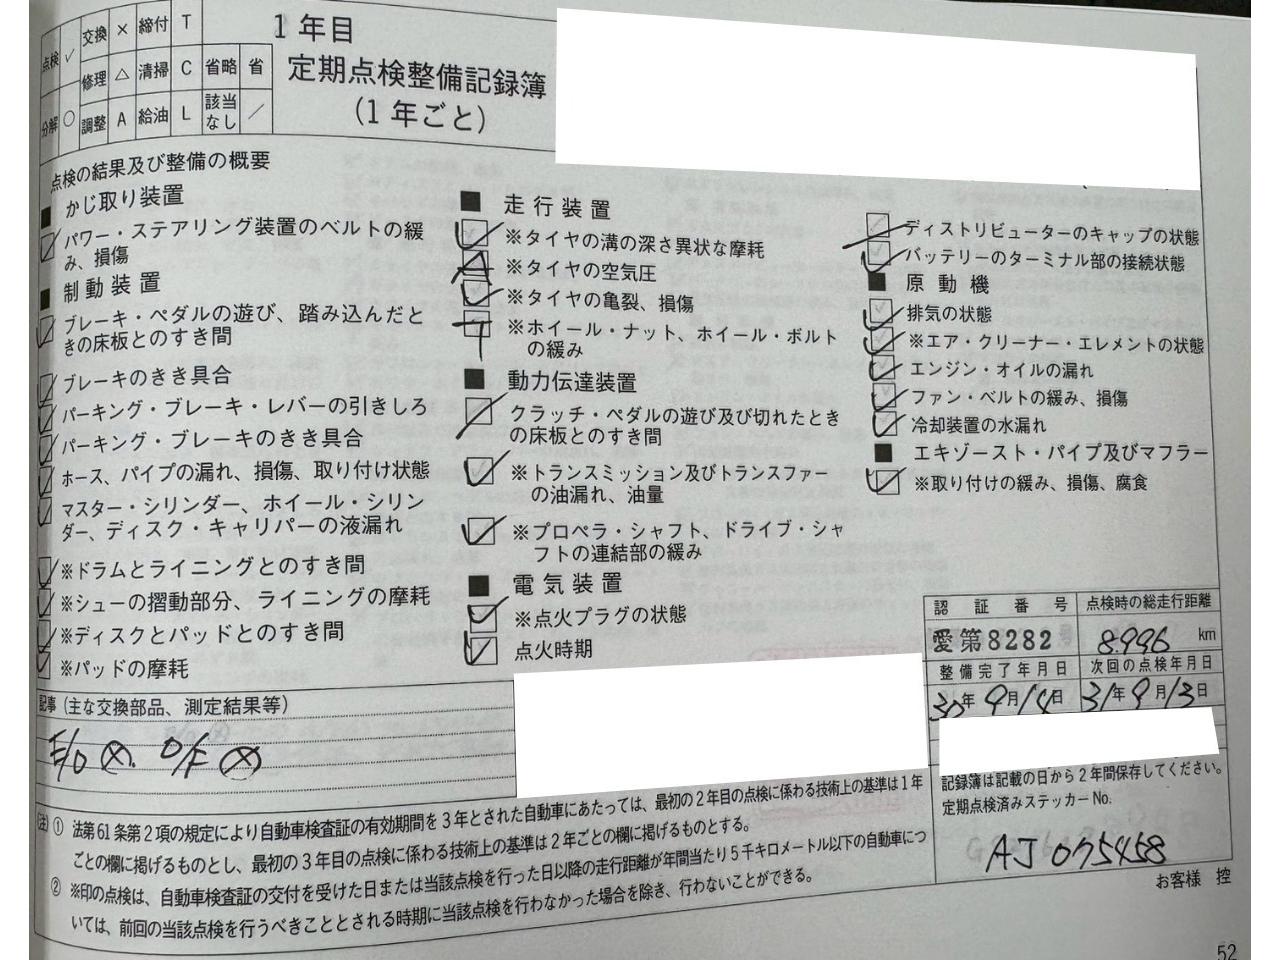 点検 ✓ 交換 × 締付 T
修理 △ 清掃 C 省略 省
分解 ○ 調整 A 給油 L 該当なし ／
1年目
定期点検整備記録簿
(1年ごと)
点検の結果及び整備の概要
■ かじ取り装置
パワー・ステアリング装置のベルトの緩
み、損傷
■ 制動装置
ブレーキ・ペダルの遊び、踏み込んだと
きの床板とのすき間
ブレーキのきき具合
パーキング・ブレーキ・レバーの引きしろ
パーキング・ブレーキのきき具合
ホース、パイプの漏れ、損傷、取り付け状態
マスター・シリンダー、ホイール・シリン
ダー、ディスク・キャリパーの液漏れ
※ドラムとライニングとのすき間
※シューの摺動部分、ライニングの摩耗
※ディスクとパッドとのすき間
※パッドの摩耗
■ 走行装置
※タイヤの溝の深さ異状な摩耗
※タイヤの空気圧
※タイヤの亀裂、損傷
※ホイール・ナット、ホイール・ボルト
の緩み
■ 動力伝達装置
クラッチ・ペダルの遊び及び切れたとき
の床板とのすき間
※トランスミッション及びトランスファー
の油漏れ、油量
※プロペラ・シャフト、ドライブ・シャ
フトの連結部の緩み
■ 電気装置
※点火プラグの状態
点火時期
ディストリビューターのキャップの状態
バッテリーのターミナル部の接続状態
■ 原動機
排気の状態
※エア・クリーナー・エレメントの状態
エンジン・オイルの漏れ
ファン・ベルトの緩み、損傷
冷却装置の水漏れ
■ エキゾースト・パイプ及びマフラー
※取り付けの緩み、損傷、腐食
認証番号 点検時の総走行距離
愛第8282号 8.996 km
整備完了年月日 次回の点検年月日
30年9月14日 31年9月13日
記事(主な交換部品、測定結果等)
E/O ⊗. O/F ⊗
記録簿は記載の日から2年間保存してください。
定期点検済みステッカーNo.
AJ 075458
(注)① 法第61条第2項の規定により自動車検査証の有効期間を3年とされた自動車にあたっては、最初の2年目の点検に係わる技術上の基準は1年
ごとの欄に掲げるものとし、最初の3年目の点検に係わる技術上の基準は2年ごとの欄に掲げるものとする。
② ※印の点検は、自動車検査証の交付を受けた日または当該点検を行った日以降の走行距離が年間当たり5千キロメートル以下の自動車につ
いては、前回の当該点検を行うべきこととされる時期に当該点検を行わなかった場合を除き、行わないことができる。
お客様 控
52